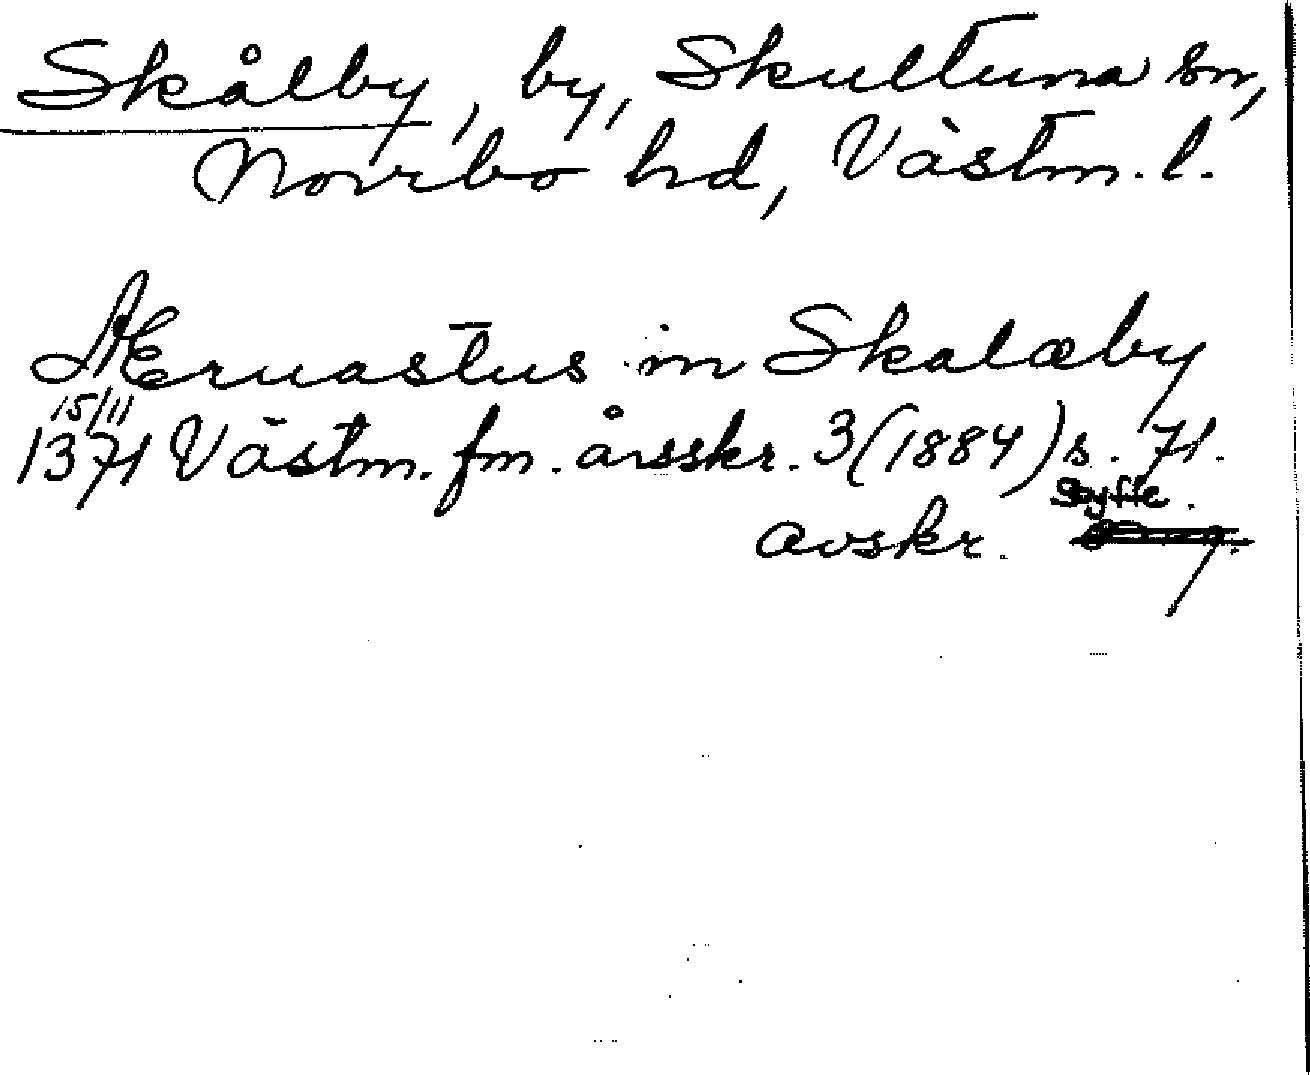 Skålby, by, Skultuna sn,
Norrbo hd, Västm. l.
Æruastus in Skalæby
15/11
1371 Västm. fm. årsskr. 3 (1884) s. 71.
Styffe.
avskr.